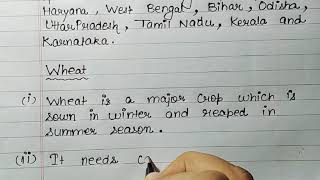 Haryana, West Bengal, Bihar, Odisha,
Uttar Pradesh, Tamil Nadu, Kerala and
Karnataka.
Wheat
(i) Wheat is a major crop which is
sown in winter and reaped in
summer season.
(ii) It needs c